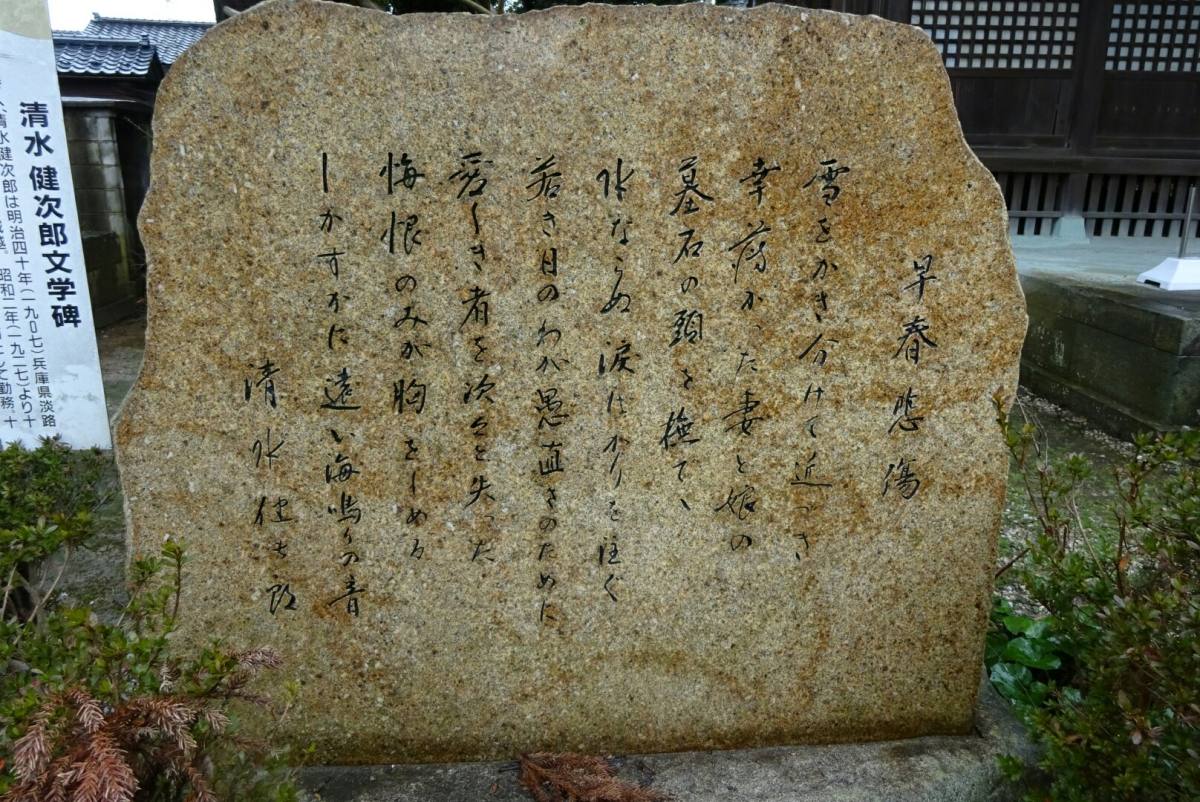 早春悲傷
雪をかき分けて近づき
幸薄かった妻と娘の
墓石の頭を撫でゝ
水ならぬ涙ばかりを注ぐ
若き日のわが愚直さのために
愛しき者を次々と失った
悔恨のみが胸をしめる
しかすがに遠い海鳴りの音
清水健次郎
清水健次郎文学碑
清水健次郎は明治四十年(一九〇七)兵庫県淡路
昭和二年(一九二七)より十
して勤務。十